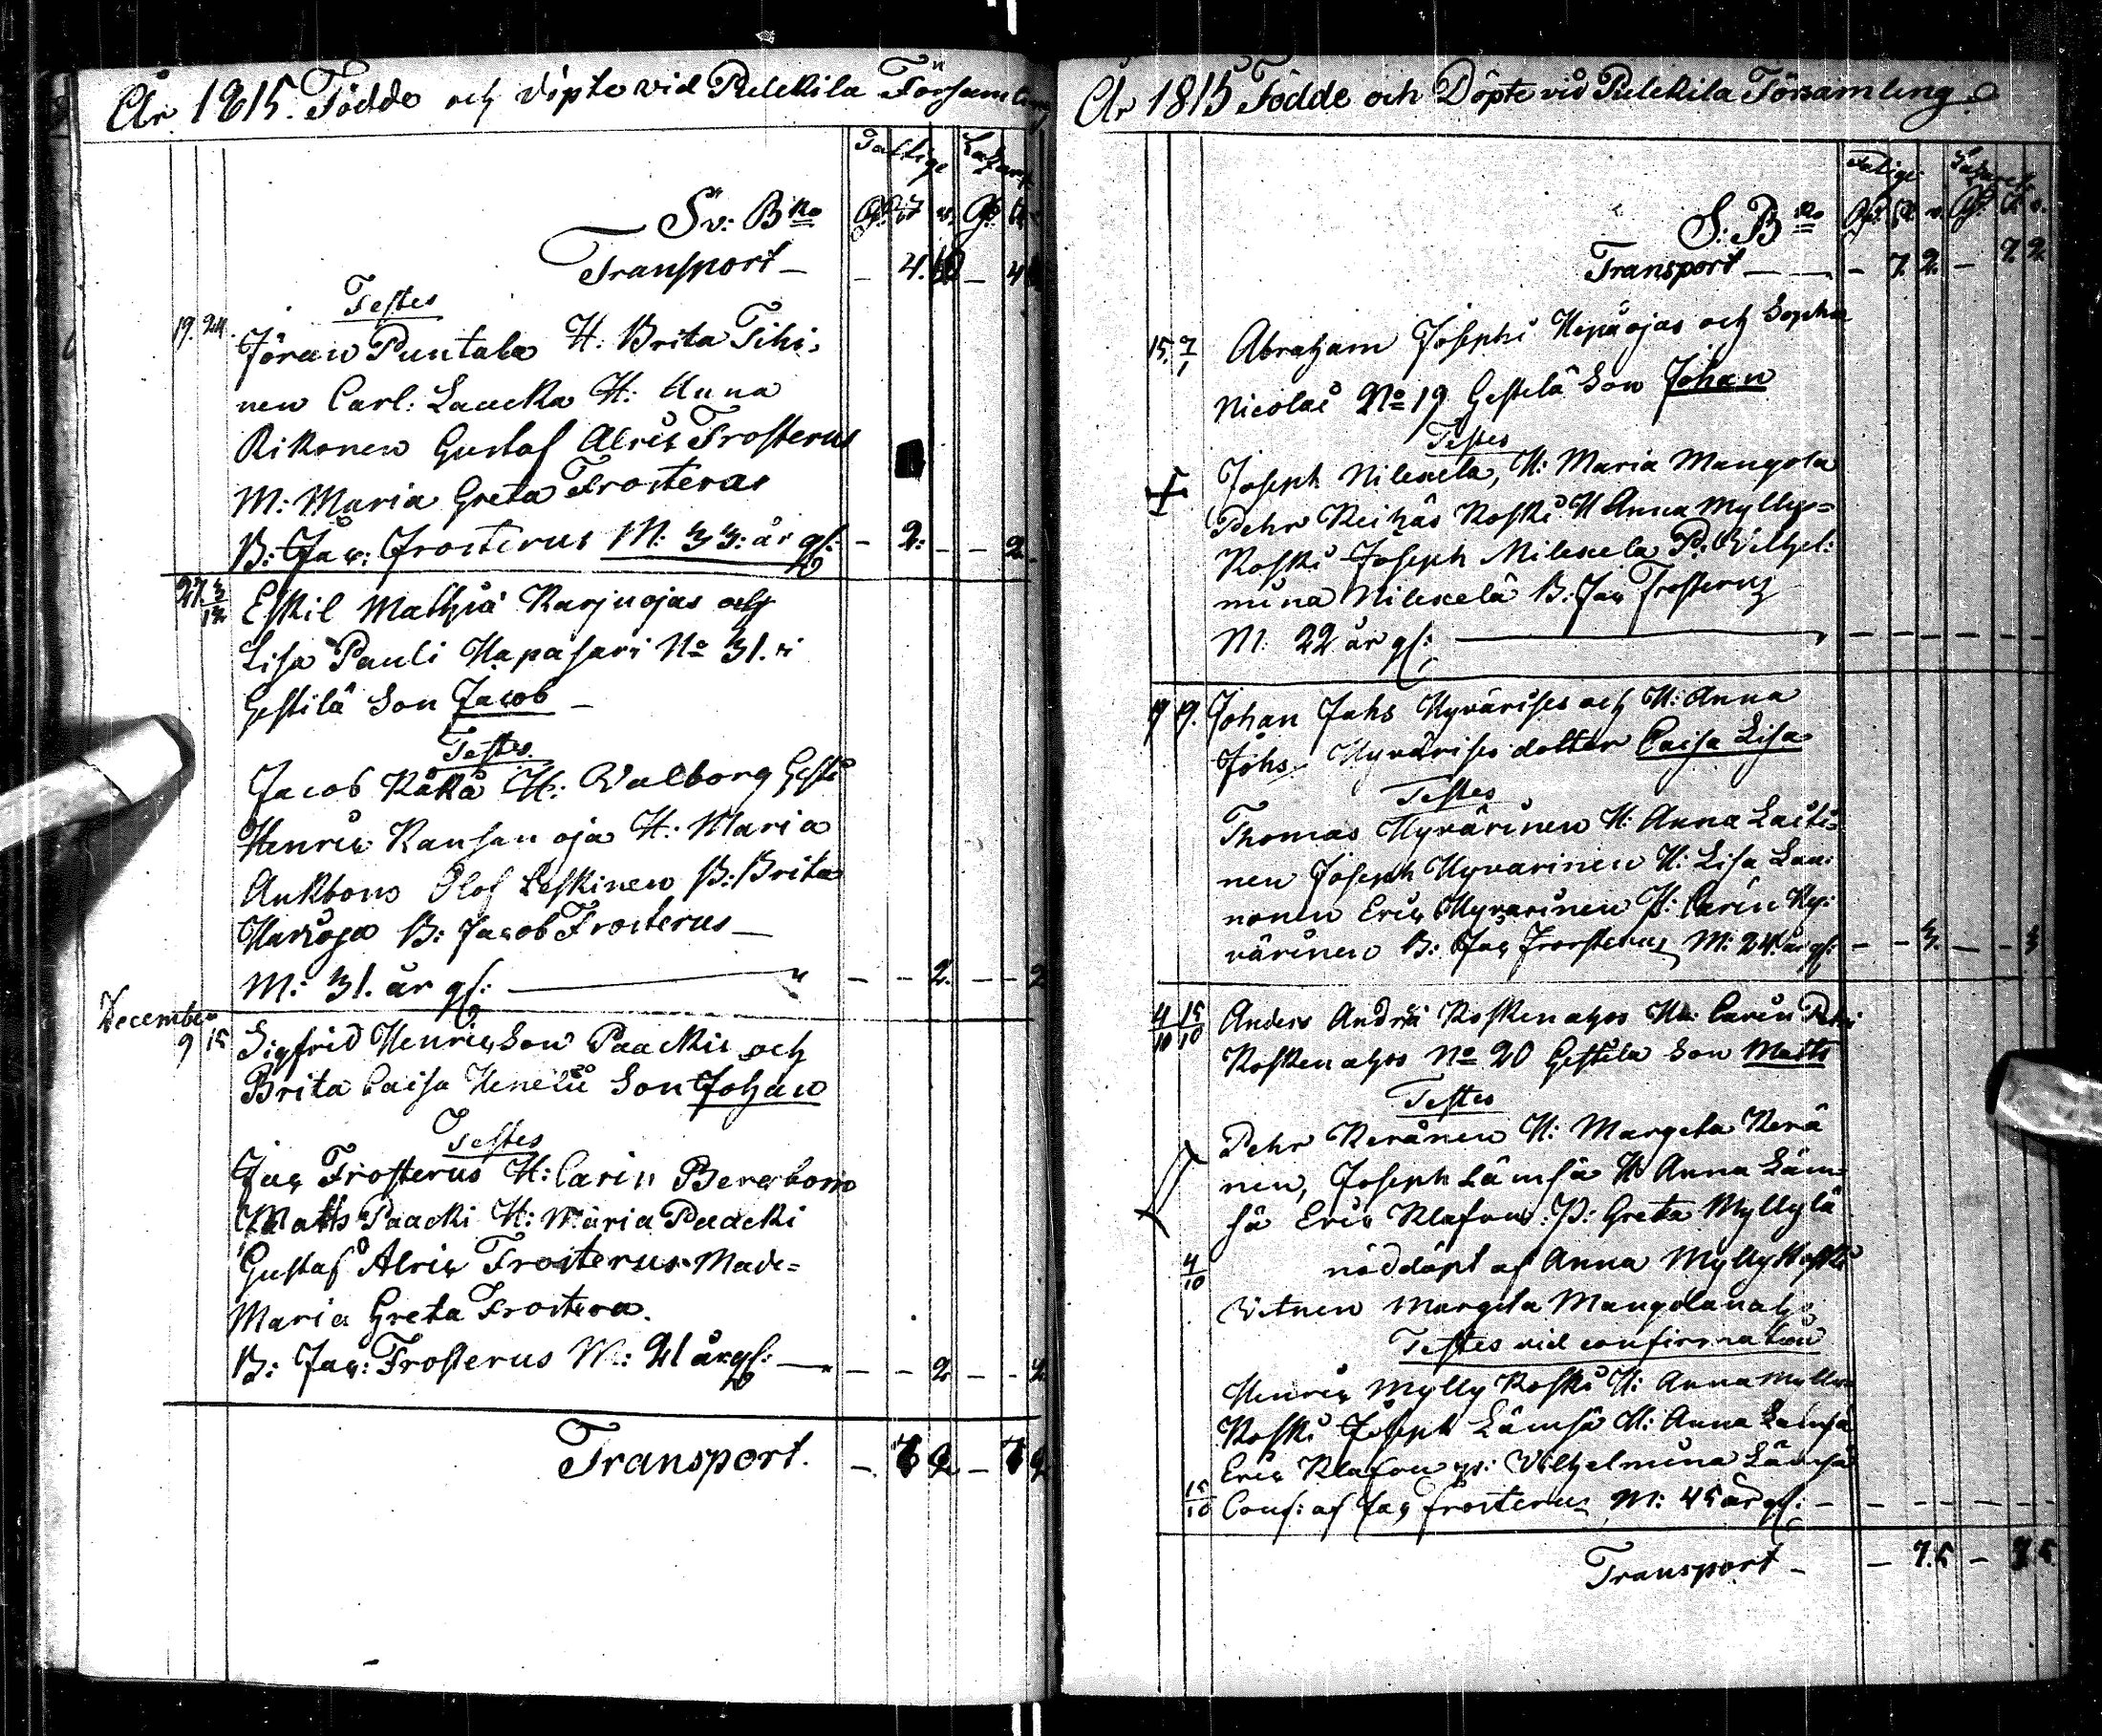 År 1815. Födde och döpte vid Pulckila Församling
Fattige Lazaret
Sv: B:ko
Transport — — 4.10 —
Testes
19. 24. Jöran Puntala H: Brita Tihi-
nen Carl: Laacka H: Anna
Rikonen Gustaf Alric Frosterus
M: Maria Greta Frosteras
B: Jac: Frosterus M: 33: år gl: — 2: — — 2 —
27 3/12 Eskil Mathiæ Karjuojas och
Lisa Pauli Hapasari No 31. i
Gestilä Son Jacob —
Testes
Jacob Råkå H: Walborg
Henric Kansan oja H: Maria
Ankbom Olof Leskinen P: Brita
Harioja B: Jacob Frosterus —
M: 31. år gl: — — — 2. — — 2
December
9 15 Sigfrid Henricson Paackis och
Brita Caisa Son Johan
Testes
Jac Frosterus H: Carin Bergbom
Matts Paacki H: Maria Paacki
Gustaf Alric Frosterus Made-
Maria Greta Frostera.
B: Jac: Frosterus M: 21 år gl: — — — 2 — — 2
Transport. — 7 2 — 7 2
År 1815 Födde och Döpte vid Pulckila Församling
Fatige Lazaret
S: B:ko
Transport — — — 7. 2. — 7. 2.
15. 7/1 Abraham Josephi Hepäojas och Sophia
Nicolai No 19 Gestilä Son Johan
Testes
Joseph Nilekela, H: Maria Mangola
Pehr Keihäs Koski H Anna Mylly-
Koski Joseph Nilekela P: Wilhel-
mina Nilekelä B: Jac Frosterus
M: 22 år gl: — — — — — — —
19. Johan Johs Hyvärises och H: Anna
Johs Hyvärises dotter Caisa Lisa
Testes
Thomas Hyvärinen H: Anna Laiti-
nen Joseph Hyvarinen H: Lisa Lau-
nonen Eric Hyvarinen H: Carin Hy-
värinen B: Jac Frosterus M: 24. år gl: — — 3. — — 3
4/10 15/10 Anders Andreæ Koskenahos H: Carin Petri
Koskenahos No 20 Gestilä Son Matts
Testes
Pehr Keränen H: Margeta Kerä
nen, Joseph Lämsä H Anna Läm-
sä Eric Klafus: P: Greta Myllylä
4/10 nöddöpt af Anna Myllykoski
Vitnen Margeta Mangolanah
Testes vid confirmation
Henric Mylly Koski H: Anna Mylly-
Koski Joseph Lämsä H: Anna Lämsä
Eric Klafus P: Wilhelmina Lämsä
15/10 Conf: af Jac Frosterus M: 45 år gl: — — — — — — —
Transport — — 7.5 — 7.5